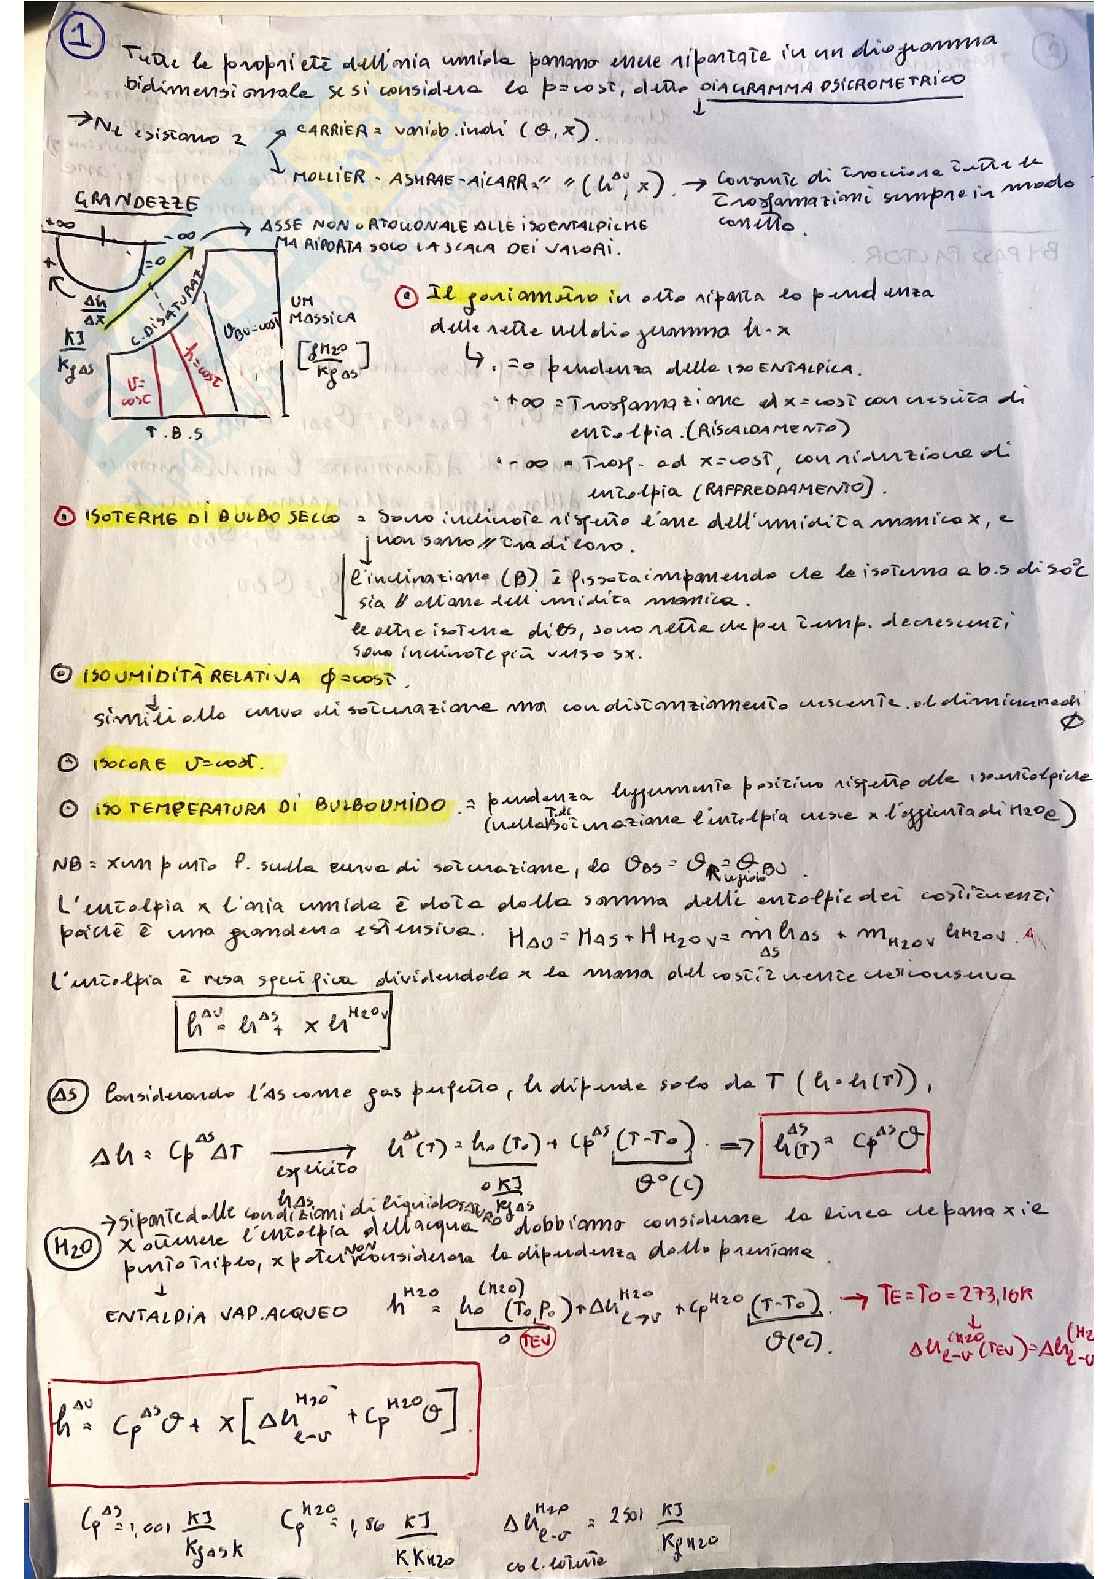 1
Tutte le proprietà dell'aria umida possono essere riportate in un diagramma
bidimensionale se si considera la p=cost, detto DIAGRAMMA PSICROMETRICO
→ Ne esistono 2 ↗ CARRIER = variab. indi (θ, x).
↘ MOLLIER - ASHRAE - AICARR = " " (h^AU, x). → Consente di tracciare tutte le
trasformazioni sempre in modo
corretto.
GRANDEZZE
+∞ -∞
→ ASSE NON ORTOGONALE ALLE ISOENTALPICHE
MA RIPORTA SOLO LA SCALA DEI VALORI.
+ =0
Δh/Δx
KJ/Kg AS
C. DI SATURAZ
θBU=cost
UM MASSICA
[g H2O/Kg AS]
v=cost
h=cost
T.B.S
Il goniometro in alto riporta la pendenza
delle rette nel diagramma h-x
↳ · =0 pendenza delle ISOENTALPICA.
· +∞ = Trasformazione ad x=cost con crescita di
entalpia. (RISCALDAMENTO)
· -∞ = Trasf. ad x=cost, con riduzione di
entalpia (RAFFREDDAMENTO).
ISOTERME DI BULBO SECCO = Sono inclinate rispetto l'asse dell'umidità massica x, e
non sono // tra di loro.
l'inclinazione (B) è fissata imponendo che la isoterma a b.s di 50°C
sia // all'asse dell'umidità massica.
le altre isoterme di bs, sono rette che per temp. decrescenti
sono inclinate più verso sx.
ISOUMIDITÀ RELATIVA φ=cost.
simili alla curva di saturazione ma con distanziamento crescente al diminuire di
φ
ISOCORE v=cost.
ISO TEMPERATURA DI BULBO UMIDO = pendenza leggermente positiva rispetto alle isoentalpiche
(nella saturazione l'entalpia cresce x l'aggiunta di H2Oe)
NB = x un punto P. sulla curva di saturazione, ho θBS = θR = θBU.
Rugiada
L'entalpia x l'aria umida è data dalla somma delle entalpie dei costituenti
poiché è una grandezza estensiva. H_AU = H_AS + H_H2Ov = m_AS h_AS + m_H2Ov h_H2Ov.
L'entalpia è resa specifica dividendola x la massa del costituente che si conserva
h^AU = h^AS + x h^H2Ov
AS Considerando l'AS come gas perfetto, h dipende solo da T (h=h(T)),
Δh = Cp^AS ΔT → h^AS(T) = h0(T0) + Cp^AS (T-T0). ⇒ h^AS(T) = Cp^AS θ
esplicito h^AS
0 KJ/Kg AS
θ°(C)
→ si parte dalle condizioni di liquido saturo
H2O x ottenere l'entalpia dell'acqua dobbiamo considerare la linea che passa x il
punto triplo, x poter non considerare la dipendenza dalla pressione
↓
ENTALPIA VAP. ACQUEO h^H2O = h0^(H2O) (T0,P0) + Δh^H2O_l→v + Cp^H2O (T-T0). → TE = T0 = 273,16K
0 TEV θ(°C).
Δh^(H2O)_l-v (TEV) = Δh^(H2_l-v
h^AU = Cp^AS θ + x [Δh^H2O_l-v + Cp^H2O θ]
Cp^AS = 1,001 KJ/Kg AS K
Cp^H2O = 1,86 KJ/K KH2O
Δh^H2O_l-v = 2501 KJ/Kg H2O
cal. latente